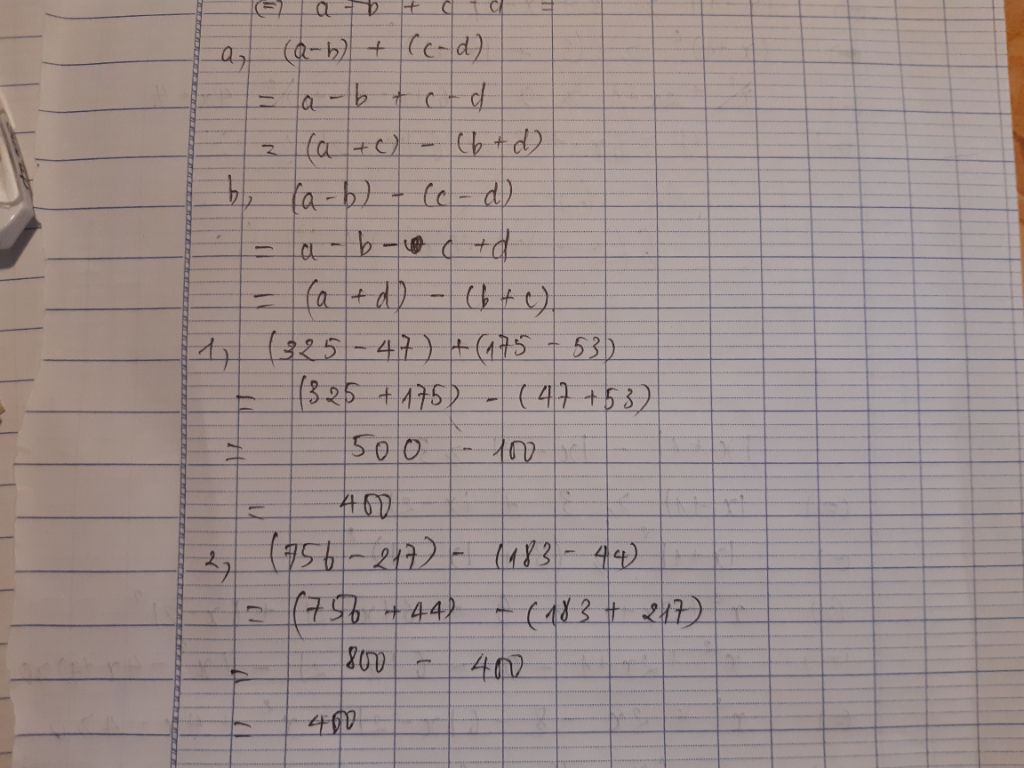 (=) a - b + c - d =
a, (a-b) + (c-d)
= a - b + c - d
= (a + c) - (b + d)
b, (a - b) - (c - d)
= a - b - c + d
= (a + d) - (b + c)
1, (325 - 47) + (175 - 53)
= (325 + 175) - (47 + 53)
= 500 - 100
= 400
2, (756 - 217) - (183 - 44)
= (756 + 44) - (183 + 217)
= 800 - 400
= 400